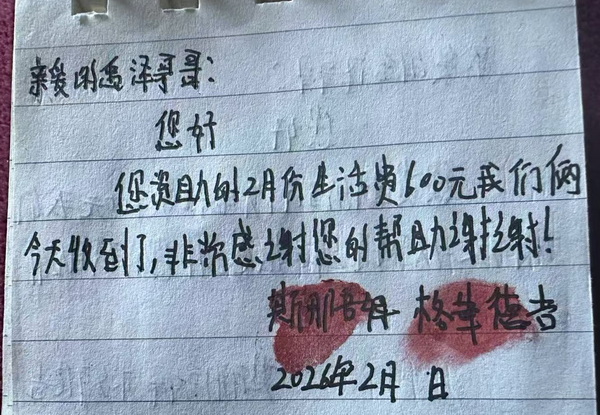 亲爱的禹泽哥哥：
您好
您资助的2月份生活费600元我们俩
今天收到了，非常感谢您的帮助谢谢！
斯那 格 德吉
2026年2月 日